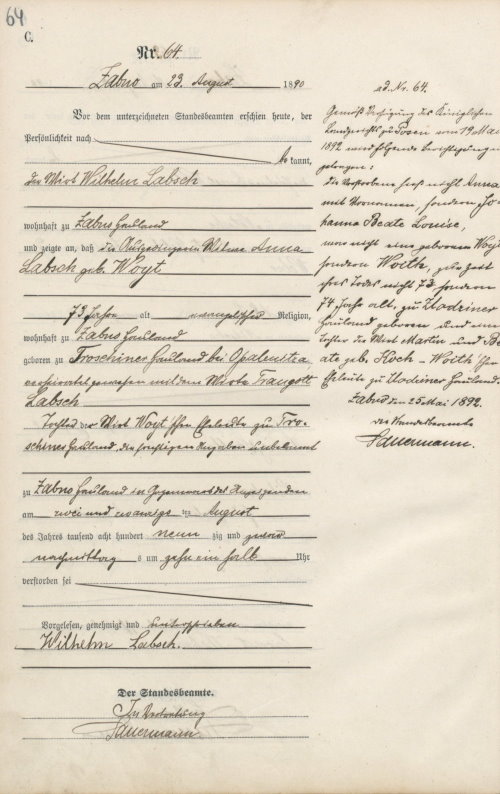 64
C.
Nr. 64.
Zabno am 23. August 1890
Vor dem unterzeichneten Standesbeamten erschien heute, der
Persönlichkeit nach
bekannt,
der Wirt Wilhelm Labsch
wohnhaft zu Zabno Hauland
und zeigte an, daß die Ausgedingerin Witwe Anna
Labsch geb. Woyt
73 Jahre alt, evangelischer Religion,
wohnhaft zu Zabno Hauland
geboren zu Troschiner Hauland bei Opalenitza
verheiratet gewesen mit dem Wirte Traugott
Labsch
Tochter der Wirt Woyt'schen Eheleute zu Tro-
schiner Hauland, die sonstigen Angaben unbekannt
zu Zabno Hauland in Gegenwart des Anzeigenden
am zwei und zwanzigsten August
des Jahres tausend acht hundert neunzig und zwar
nachmittags um zehn ein halb Uhr
verstorben sei
Vorgelesen, genehmigt und unterschrieben
Wilhelm Labsch.
Der Standesbeamte.
In Vertretung
Sauermann
ad. Nr. 64.
Gemäß Verfügung des Königlichen
Landgerichts zu Posen vom 19 Mai
1892 wird folgende Berichtigung
Die Verstorbene hieß nicht Anna
mit Vornamen, sondern Jo-
hanna Beate Louise,
war nicht eine geborene Woyt
sondern Woith, zur Zeit
ihres Todes nicht 73 sondern
74 Jahr alt, zu
Hauland geboren und eine
Tochter der Wirt Martin und Be-
ate geb. Koch - Woith'schen
Eheleute zu Hauland.
Zabno den 25 Mai 1892.
der Standesbeamte
Sauermann.